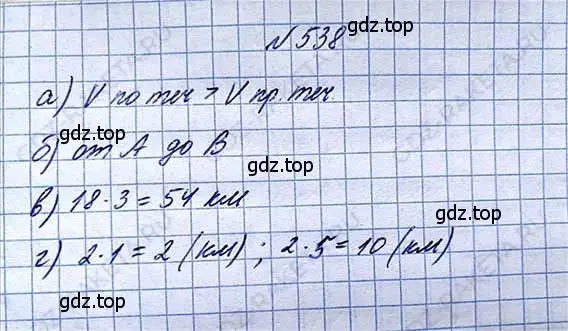 № 538
gdz.top
а) V по теч > V пр. теч.
gdz.top gdz.top
б) от А до В
gdz.top
в) 18 · 3 = 54 км
gdz.top
г) 2 · 1 = 2 (км) ; 2 · 5 = 10 (км)
gdz.top